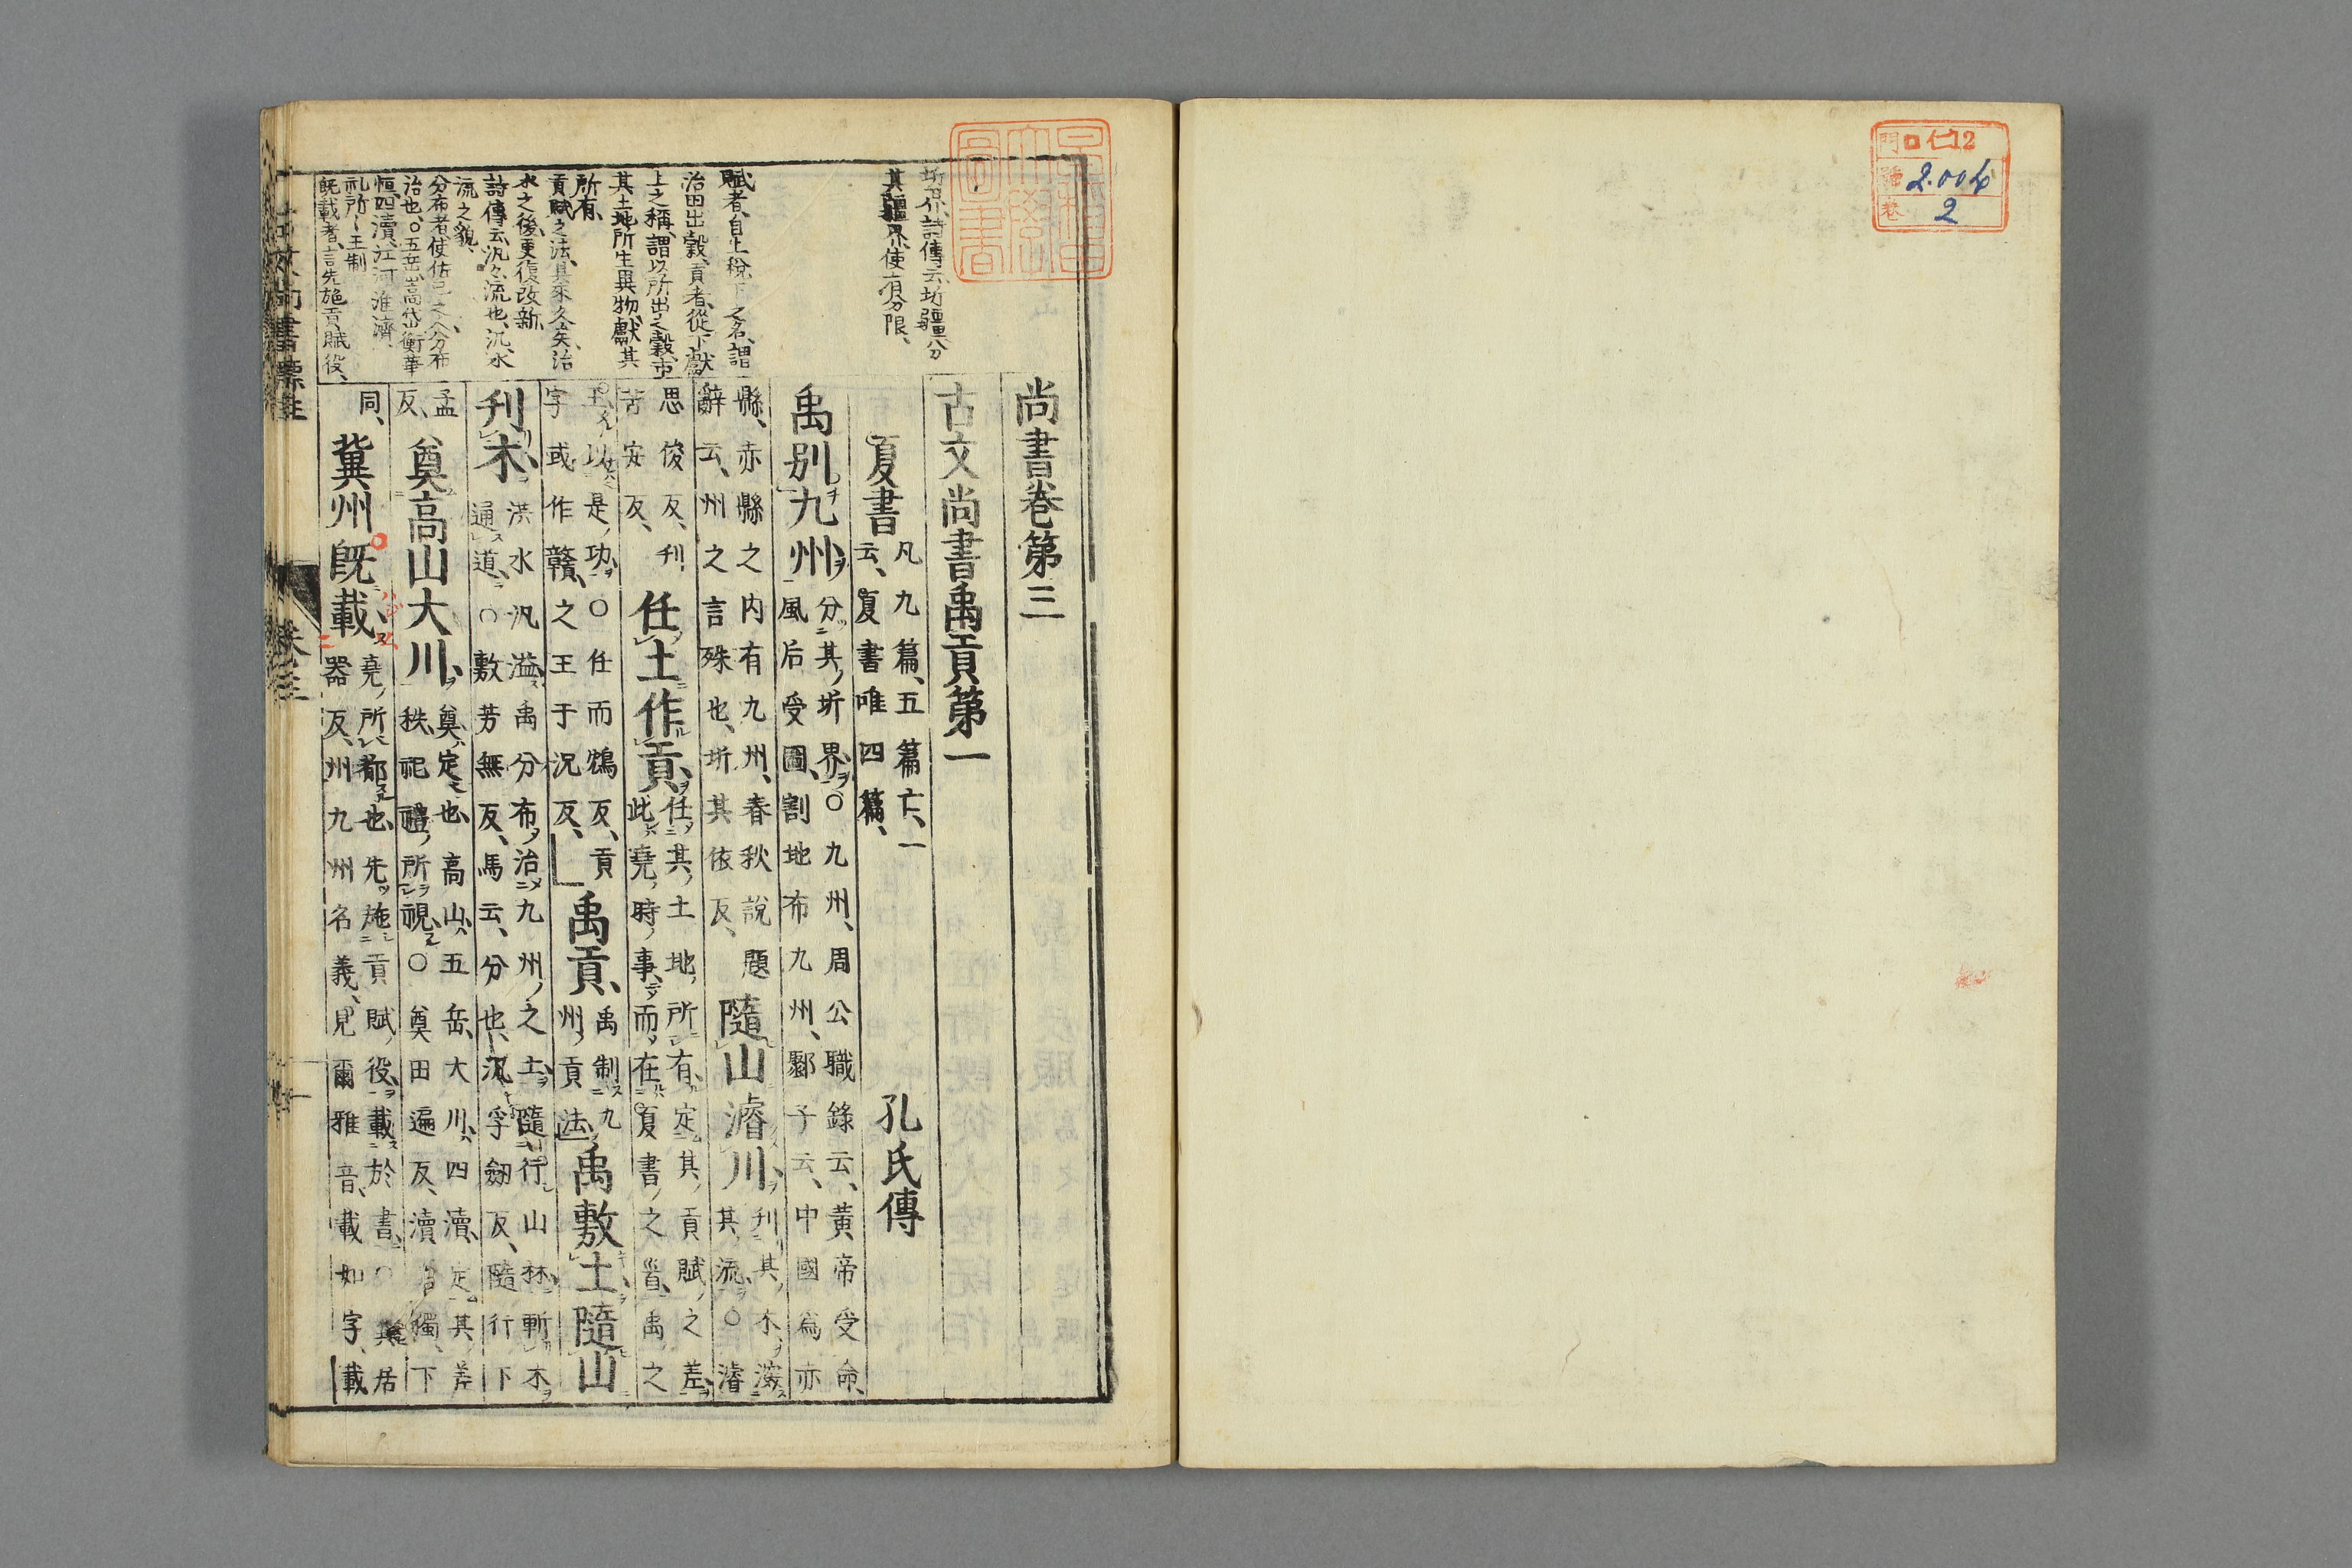 門 口 仁12
號 2.004
卷 2
早稲田大學圖書
尚書卷第三
古文尚書禹貢第一
夏書 凡九篇、五篇亡、一
云、夏書唯四篇、 孔氏傳
禹別九州 分其圻界○九州、周公職錄云、黃帝受命、
風后受圖、割地布九州、鄒子云、中國爲亦
縣、赤縣之内有九州、春秋說題
辭云、州之言殊也、圻其依反、
隨山濬川、刋其木、深
其流○濬
思俊反、刋、
苦安反、
任土作貢、任其土地所有、定其貢賦之差、
此堯時事、而在夏書之首、禹之
王以是功○任而鴆反、貢
字或作贛、之王于況反、
禹貢、禹制九
州貢法
禹敷土隨山
刋木、洪水汎溢、禹分布治九州之土、隨行山林、斬木
通道、○敷芳無反、馬云、分也、汎孚劒反、隨行下
孟
反、
奠高山大川、奠、定也、高山、五岳、大川、四瀆、定其差
秩、祀禮所視、○奠田遍反、瀆音獨、下
同、
冀州旣載、堯所都也、先施貢賦役、載於書、○
器反、州九州名義、見爾雅音、載如字、載
圻界、詩傳云、圻疆、分
其疆界、使有分限、
賦者、自上稅下之名、謂
治田出穀、貢者、從下獻
上之稱、謂以所出之穀、市
其土地所生異物、獻其
所有、
貢賦之法、其來久矣、治
水之後、更復改新、
詩傳云、汎汎、流也、汎、水
流之貌、
分布者、使佐己之人分布
治也、○五岳、嵩岱衡華
恒、四瀆、江河淮濟、
礼所〻王制
旣載者、言先施貢賦役、
古文尚書標註
卷三